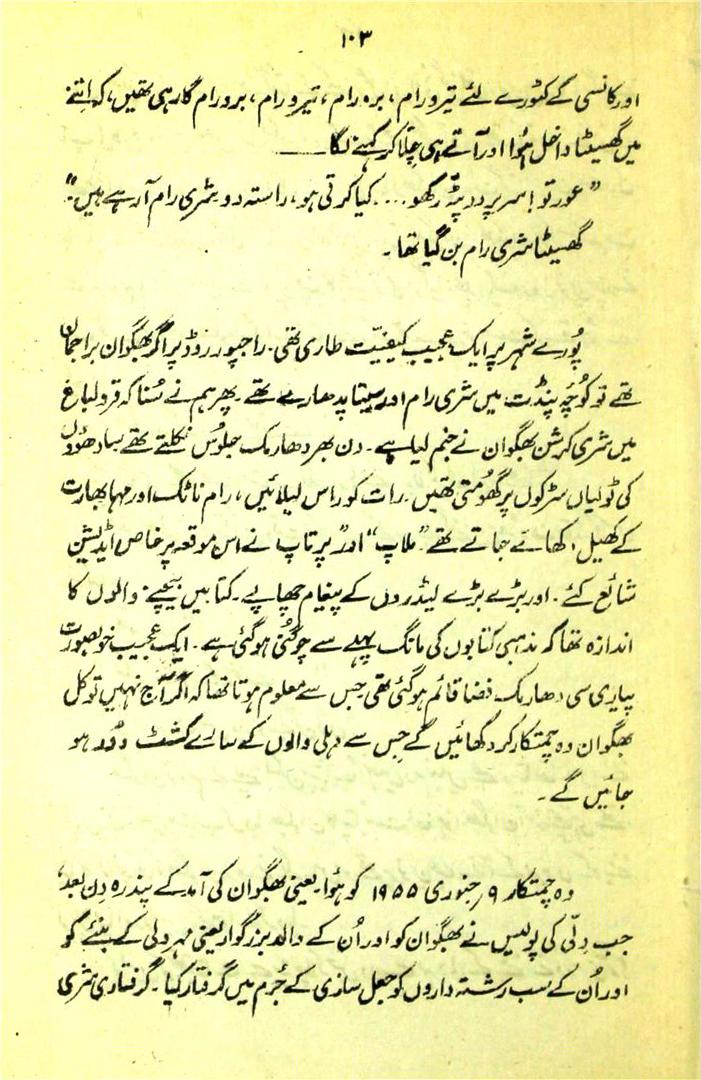 ۱۰۳
اور کانسی کے کٹورے لئے تیرو رام ، برہ رام ، تیرو رام ، برو رام گا رہی تھیں ، کہ اتنے
میں گھسیٹا داخل ہُوا اور آتے ہی چلّا کر کہنے لگا ——
”عورتو! سر پر دوپٹّہ رکھو.... کیا کرتی ہو، راستہ دو شری رام آ رہے ہیں“۔
گھسیٹا شری رام بن گیا تھا ۔
پُورے شہر پر ایک عجیب کیفیّت طاری تھی۔ راجپور روڈ پر اگر بھگوان براجمان
تھے تو کوچَہ پنڈت میں شری رام اور سیتا پدھارے تھے ۔ پھر ہم نے سُنا کہ قرولباغ
میں شری کرشن بھگوان نے جنم لیا ہے ۔ دن بھر دھارمک جلُوس نکلتے تھے سادھوؤں
کی ٹولیاں سڑکوں پر گھُومتی تھیں ۔ رات کو راس لیلائیں ، رام ناٹک اور مہابھارت
کے کھیل دکھائے جاتے تھے ۔ ”ملاپ“ اور ”پرتاپ نے اس موقعہ پر خاص ایڈیشن
شائع کئے ۔ اور بڑے بڑے لیڈروں کے پیغام چھاپے ۔ کتابیں بیچنے والوں کا
اندازہ تھا کہ مذہبی کتابوں کی مانگ پہلے سے چوگُنی ہو گئی ہے ۔ ایک عجیب خوبصورت
پیاری سی دھارمک فضا قائم ہو گئی تھی جس سے معلوم ہوتا تھا کہ اگر آج نہیں تو کل
بھگوان وہ چمتکار کر دکھائیں گے جس سے دہلی والوں کے سارے کشٹ دُور ہو
جائیں گے ۔
وہ چمتکار ۹؍ جنوری ۱۹۵۵ کو ہُوا۔ یعنی بھگوان کی آمد کے پندرہ دِن بعد،
جب دِلّی کی پولیس نے بھگوان کو اور اُن کے والد بزرگوار یعنی مہرولی کے بنئے کو
اور اُن کے سب رشتہ داروں کو جعل سازی کے جُرم میں گرفتار کیا ۔ گرفتاری شری